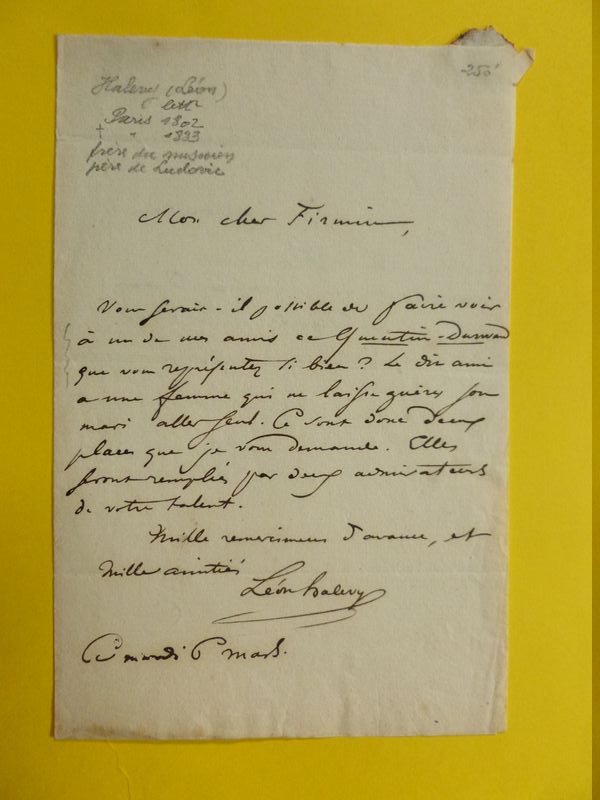 -250
Halevy (Léon)
litt
Paris 1802
† " 1883
frère du musicien
père de Ludovic
Mon cher Firmin,
Vous serait-il possible de faire voir
à un de mes amis ce Quentin-Durward
que vous représentez si bien? Le dit ami
a une femme qui ne laisse guères son
mari aller seul. Ce sont donc deux
places que je vous demande. Elles
seront remplies par deux admirateurs
de votre talent.
Mille remercimens d'avance, et
mille amitiés
Léon halevy
Ce mardi 6 mars.